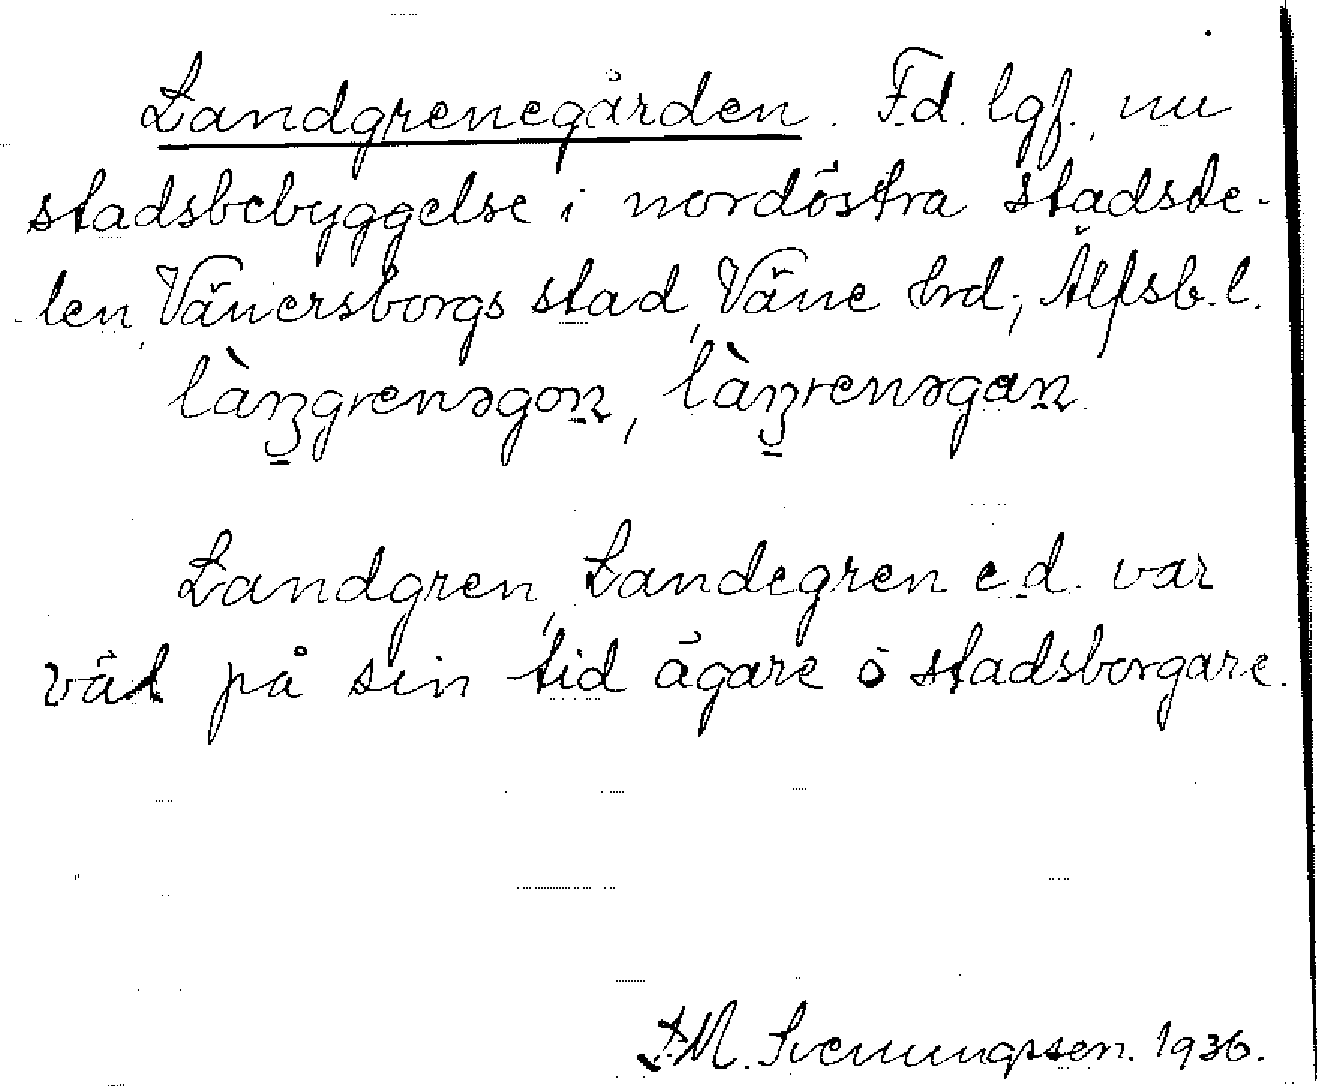 Landgrenegården. F.d. lgf., nu
stadsbebyggelse i nordöstra stadsde-
len, Vänersborgs stad, Väne hrd; Älfsb. l.
làngrenəgon, làŋrenəgan
Landgren, Landegren e.d. var
väl på sin tid ägare o stadsborgare.
F.M. Svenungsson. 1936.